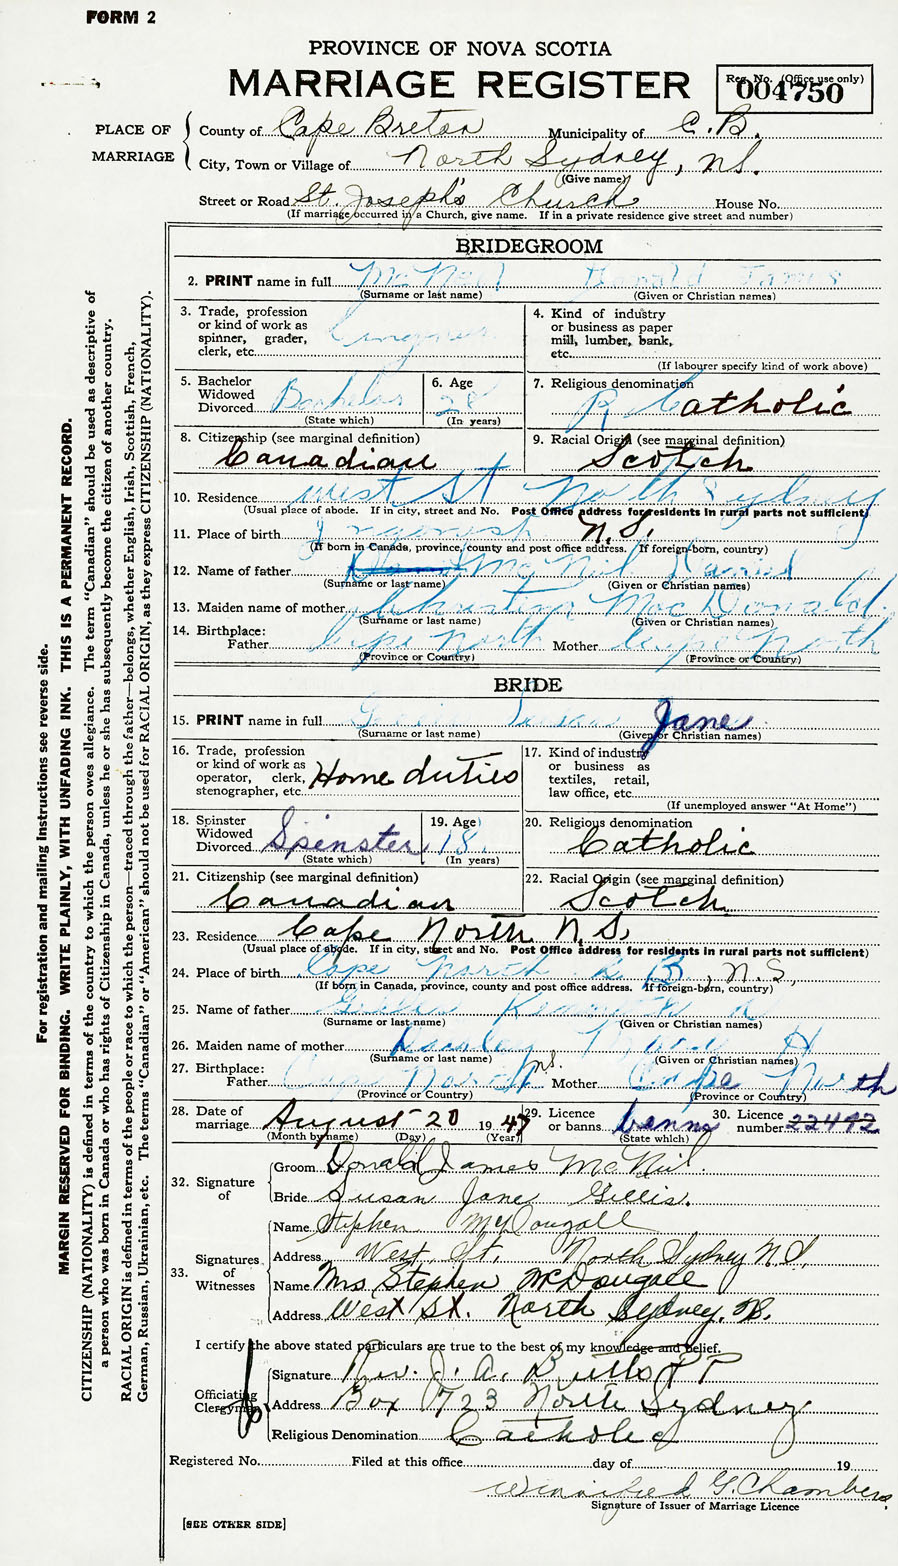 FORM 2
PROVINCE OF NOVA SCOTIA
MARRIAGE REGISTER
Reg. No. (Office use only)
004750
PLACE OF MARRIAGE
County of Cape Breton Municipality of C.B.
City, Town or Village of North Sydney, NS.
(Give name)
Street or Road St. Joseph's Church House No.
(If marriage occurred in a Church, give name. If in a private residence give street and number)
BRIDEGROOM
2. PRINT name in full McNeil Donald James
(Surname or last name) (Given or Christian names)
3. Trade, profession or kind of work as spinner, grader, clerk, etc.
4. Kind of industry or business as paper mill, lumber, bank, etc.
(If labourer specify kind of work above)
5. Bachelor Widowed Divorced Bachelor
(State which)
6. Age 28
(In years)
7. Religious denomination
R Catholic
8. Citizenship (see marginal definition)
Canadian
9. Racial Origin (see marginal definition)
Scotch
10. Residence West St North Sydney
(Usual place of abode. If in city, street and No. Post Office address for residents in rural parts not sufficient)
11. Place of birth N.S.
(If born in Canada, province, county and post office address. If foreign-born, country)
12. Name of father McNeil Daniel
(Surname or last name) (Given or Christian names)
13. Maiden name of mother Christina MacDonald
(Surname or last name) (Given or Christian names)
14. Birthplace:
Father Cape North Mother Cape North
(Province or Country) (Province or Country)
BRIDE
15. PRINT name in full Gillis Susan Jane
(Surname or last name) (Given or Christian names)
16. Trade, profession or kind of work as operator, clerk, stenographer, etc. Home duties
17. Kind of industry or business as textiles, retail, law office, etc.
(If unemployed answer "At Home")
18. Spinster Widowed Divorced Spinster
(State which)
19. Age 18
(In years)
20. Religious denomination
Catholic
21. Citizenship (see marginal definition)
Canadian
22. Racial Origin (see marginal definition)
Scotch
23. Residence Cape North N.S.
(Usual place of abode. If in city, street and No. Post Office address for residents in rural parts not sufficient)
24. Place of birth Cape North C B, N.S,
(If born in Canada, province, county and post office address. If foreign-born, country)
25. Name of father Gillis Kenneth A
(Surname or last name) (Given or Christian names)
26. Maiden name of mother Mary H
(Surname or last name) (Given or Christian names)
27. Birthplace:
Father Cape North NS. Mother Cape North
(Province or Country) (Province or Country)
28. Date of marriage August 20 1947
(Month by name) (Day) (Year)
29. Licence or banns banns
(State which)
30. Licence number 22412
32. Signature of
Groom Donald James McNeil.
Bride Susan Jane Gillis.
33. Signatures of Witnesses
Name Stephen McDougall
Address West St. North Sydney N.S.
Name Mrs Stephen McDougall
Address West St. North Sydney. NS.
I certify the above stated particulars are true to the best of my knowledge and belief.
Officiating Clergyman
Signature Rev. J. A. Butts PP
Address Box 723 North Sydney
Religious Denomination Catholic
Registered No. Filed at this office day of 19
Winnifred G. Chambers
Signature of Issuer of Marriage Licence
[SEE OTHER SIDE]
For registration and mailing instructions see reverse side.
MARGIN RESERVED FOR BINDING. WRITE PLAINLY, WITH UNFADING INK. THIS IS A PERMANENT RECORD.
CITIZENSHIP (NATIONALITY) is defined in terms of the country to which the person owes allegiance. The term "Canadian" should be used as descriptive of
a person who was born in Canada or who has rights of Citizenship in Canada, unless he or she has subsequently become the citizen of another country.
RACIAL ORIGIN is defined in terms of the people or race to which the person—traced through the father—belongs, whether English, Irish, Scottish, French,
German, Russian, Ukrainian, etc. The terms "Canadian" or "American" should not be used for RACIAL ORIGIN, as they express CITIZENSHIP (NATIONALITY).